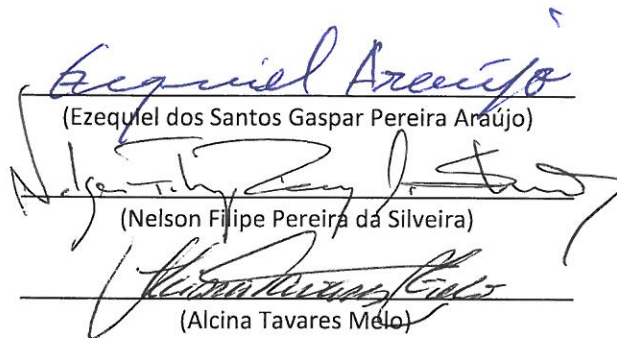 Ezequiel Araújo
(Ezequiel dos Santos Gaspar Pereira Araújo)
(Nelson Filipe Pereira da Silveira)
Alcina Tavares Melo
(Alcina Tavares Melo)